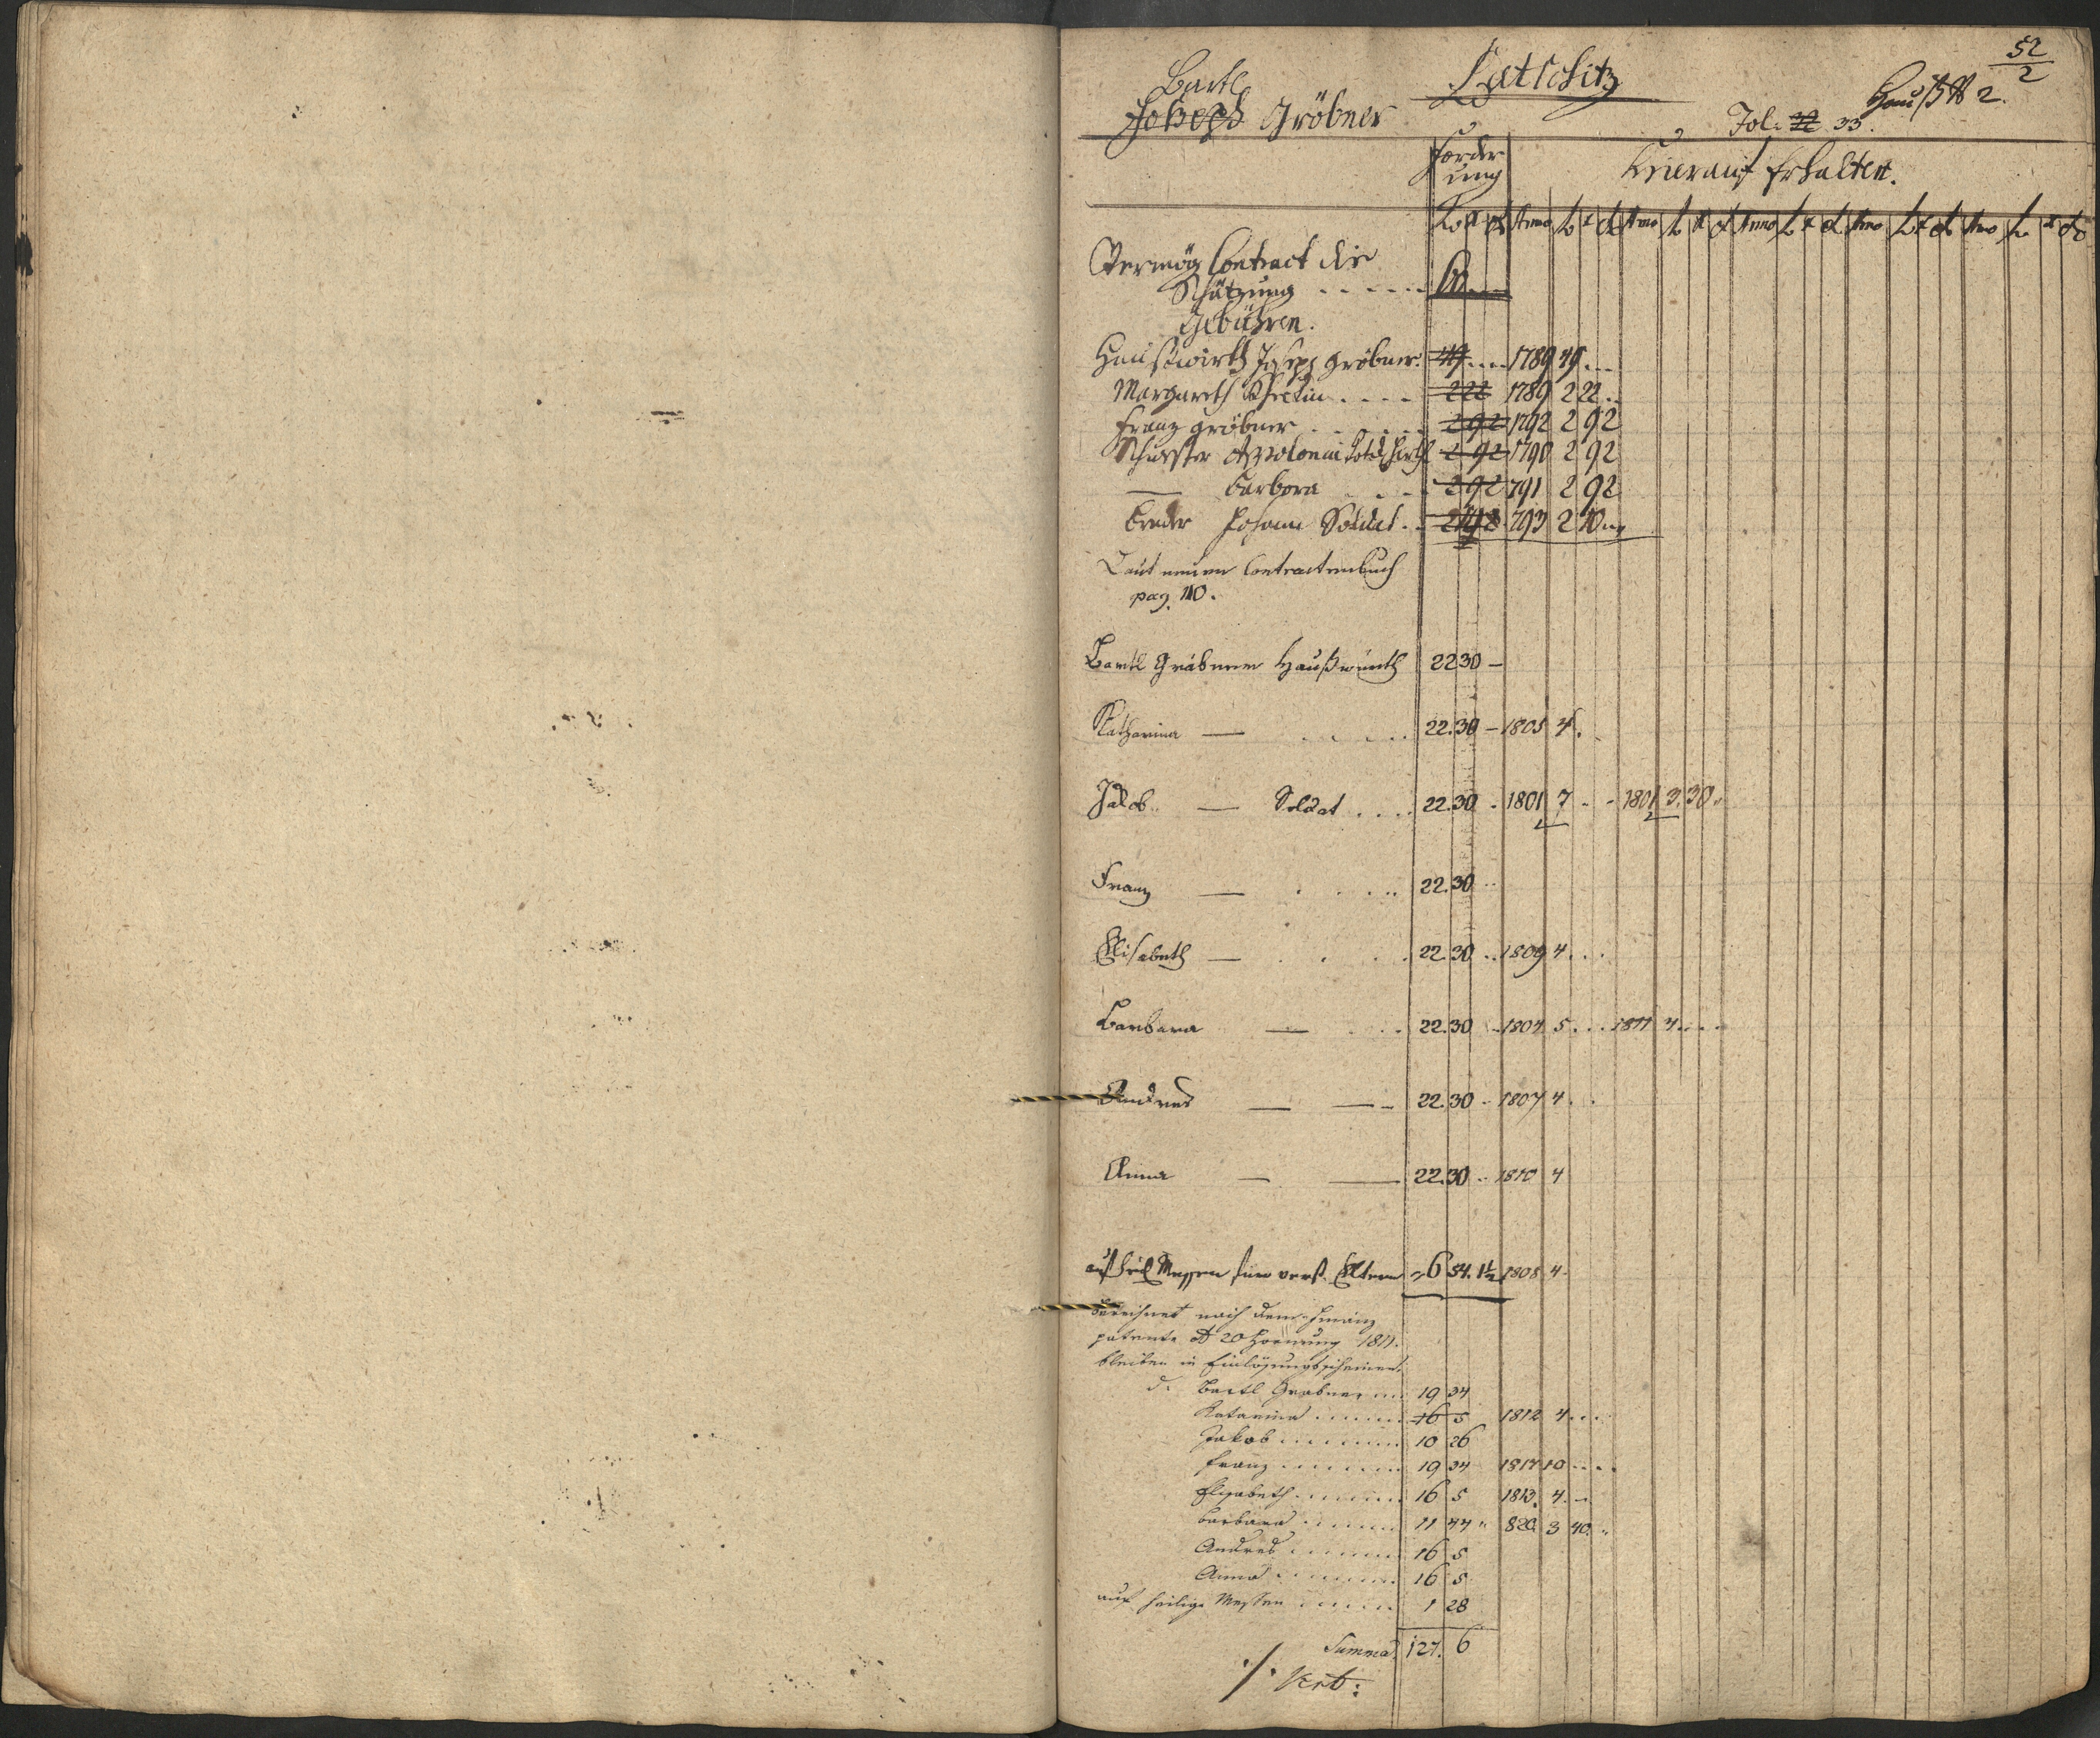 52/2
Bartl Latschitz Hauß N 2.
Joseph Gröbner Fol: 32 33.
Forder
ung Hierauf Erhalten.
Anno Anno Anno Anno Anno
Vermög Contract die
Schätzung . . . . . . 60
Gebühren.
Haußwirth Joseph Gröbner. 49 1789 49
Margareth . . . . 222 1789 2 22
Franz Gröbner . . . . . 2 92 1792 2 92
Schwester Apolonia 2 92 1790 2 92
— Barbora . . . . 2 92 791 2 92
Bruder Johann Soldat . . 793 2 10
Laut neuen Contractenbuch
pag. 110.
Bartl Gröbner Haußwirth 22 30 –
Katharina — . . . . . 22.30 – 1805 4.
Jakob — Soldat . . . . 22.30 - 1801 7 - - 1801 3.30
Franz — . . . . . 22.30 ..
Elisabeth — . . . . . 22.30 .. 1809 4 . . .
Barbara — . . . 22.30 .. 1804 5 . . . 1811 4 . . . .
Andres — — 22.30 .. 1807 4 . .
Anna — — 22.30 .. 1810 4
auf heil Messen für verst. Eltern 6 54. 1½ 1808 4.
berechnet nach dem Finanz
patente dt 20 Hornung 1811.
bleiben in Einlösungsscheinen.
d. Bartl Grabner 19 34
Katarina 16 5 1812 4 . . . .
Jakob 10 26
Franz 19 34 1817 10 . . . .
Elisabeth 16 5 1813. 4. –
Barbara 11 44 " 820. 3 40. "
Andred 16 5
Anna 16 5
auf heilige Messen 1 28
Summa 127. 6
./. Vert: